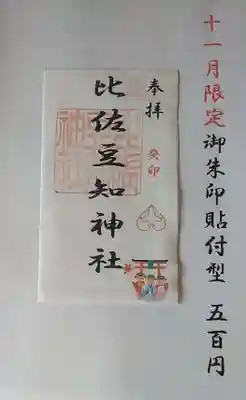 十一月限定 御朱印貼付型 五百円
奉拝
癸卯
比佐豆知神社